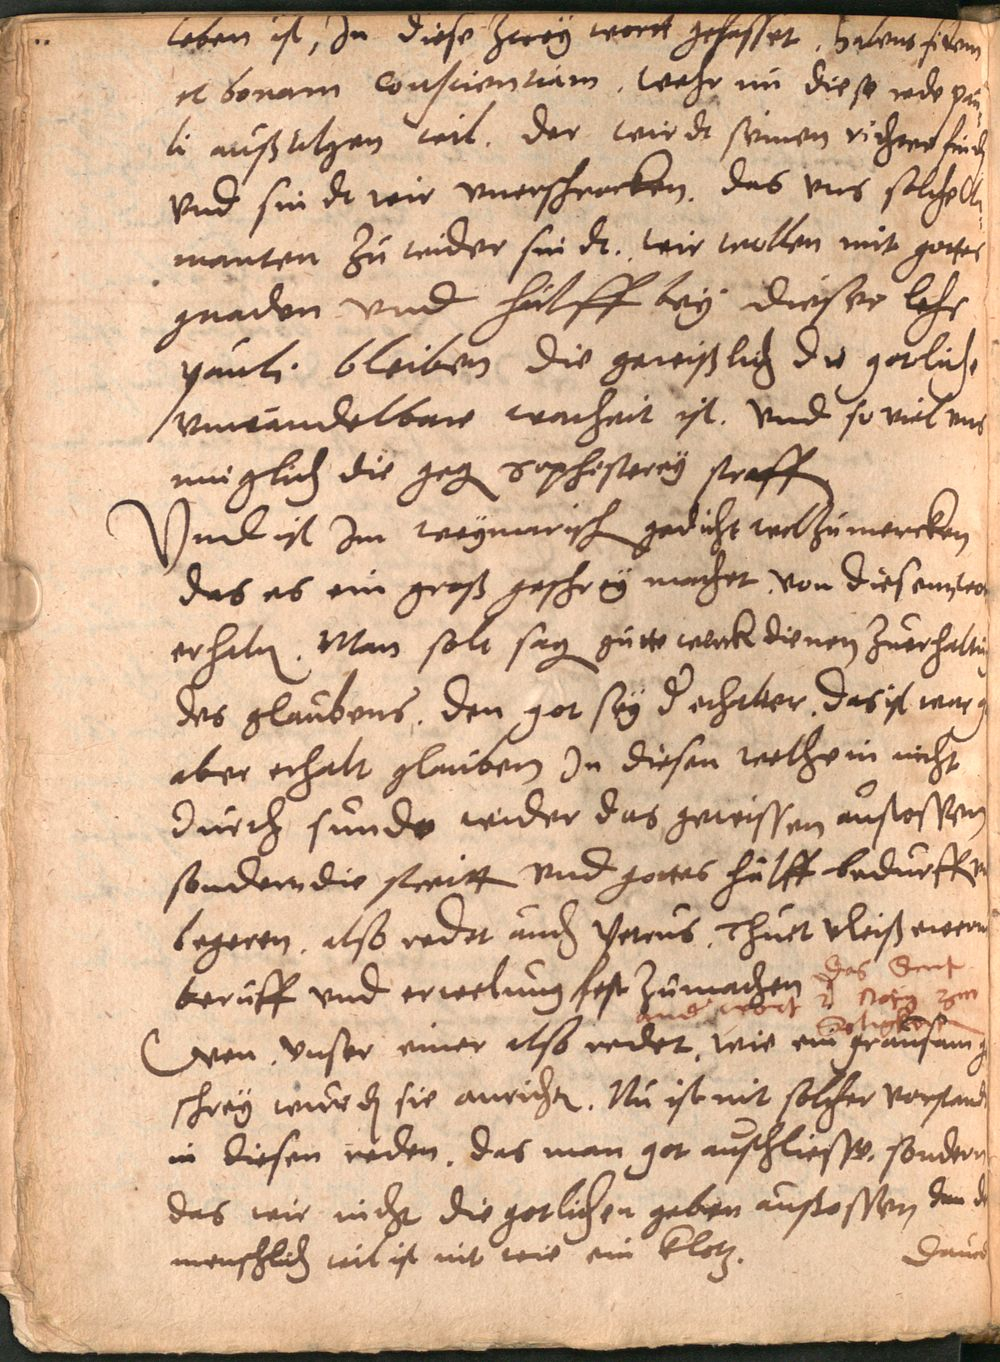 leben ist, In diese zwey wortt gefasset, habens fidem
et bonam conscientiam, wehr nu diese rede pau-
li außtilgen wil, der wirdt seinen richter finden
vnd sindt wir vnerschrocken, das vns solche
manten zu wider sindt, wir wollen mit gottes
gnaden vnd hülff bey dieser lehr
pauli bleiben die gewißlich die gotliche
vnwandelbare warheit ist, vnd so viel vns
müglich die gegen sophisterey straffen
Vnd ist Im weymarisch gedicht wol zumercken
das es ein groß geschrey machet, von diesem wort
erhalten, Man solt sagen gutte werck dienen zuerhaltung
des glaubens, den got sey der erhalter, das ist war
aber erhalt glauben In diesen welche in nicht
durch sunde wider das gewissen außstossen
sondern die streitt vnd gottes hülff bedürffen
begeren, also redet auch Petrus, Thuet vleiß ewern
beruff vnd erwelung fest zumachen
Wen vnser einer also redet, wie ein grausam ge
schrey würden sie anrichten. Nu ist nit solcher vorstandt
in diesen reden, das man got außschliesse, sondern
das wir nicht die gotlichen gaben außstossen den der
menschlich wil ist nit wie ein klotz.